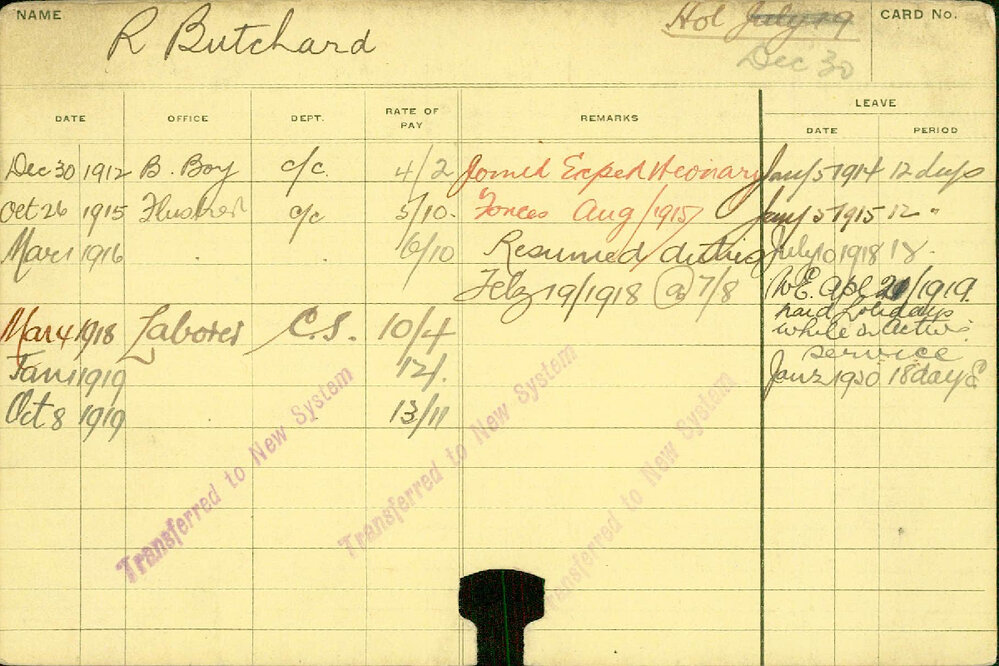 NAME
R Butchard
Hol July 19
Dec 30
CARD No.
DATE OFFICE DEPT. RATE OF PAY REMARKS LEAVE
DATE PERIOD
Dec 30 1912 B. Boy c/c. 4/2 Joined Expeditionary Jany 5 1914 12 days
Oct 26 1915 c/c 5/10. Forces Aug/1915 Jany 5 1915 12 "
Mar 1 1916 . . 6/10 Resumed duties July 10 1918 18.
Feb 19/1918 @ 7/8 W.E. Apl /1919.
paid holidays
while on active
service
Mar 4 1918 Laborer C.S. 10/4
Jan 1 1919 12/. Jan 2 1920 18 days
Oct 8 1919 . . 13/11
Transferred to New System
Transferred to New System
Transferred to New System